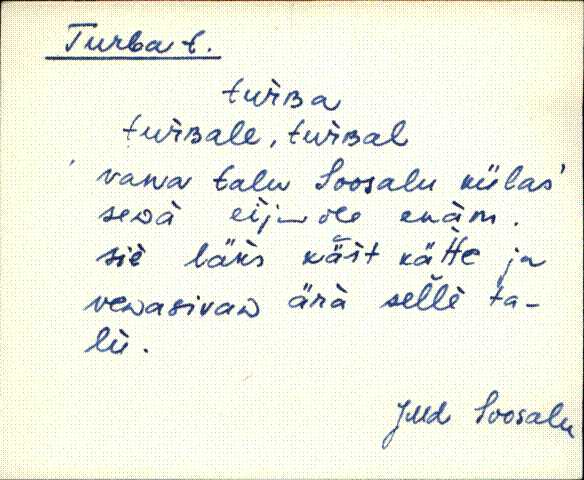 Turba t.
turʙa
turʙale, turʙal
'vana talu Soosalu külas'
sedä eij‿ole enäm.
siè läks käśt kätte ja
vedasivad ärà sellè ta-
lù.
Jüd Soosalu